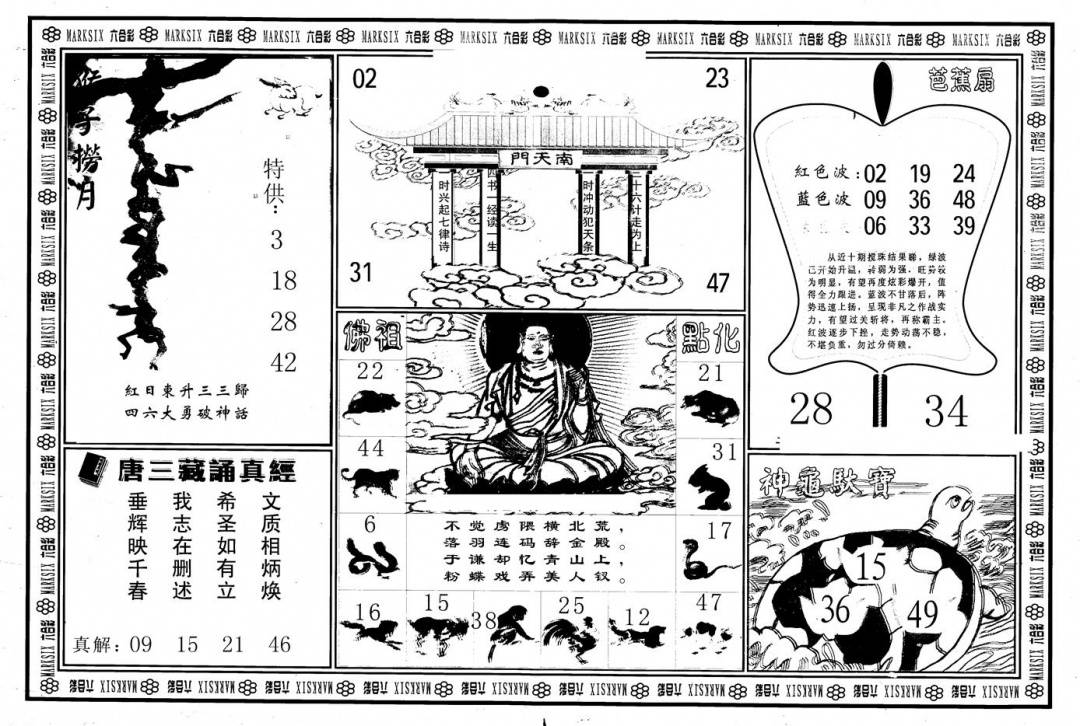 MARKSIX 六合彩 MARKSIX 六合彩 MARKSIX 六合彩 MARKSIX 六合彩 MARKSIX 六合彩 MARKSIX 六合彩 MARKSIX 六合彩 MARKSIX 六合彩 MARKSIX 六合彩 MARKSIX 六合彩
猴子撈月
特供:
3
18
28
42
紅日東升三三歸
四六大勇破神話
02
23
南天門
时兴起七律诗
四书一经读一生
时冲动犯天条
三十六计走为上
31
47
芭蕉扇
紅色波:02 19 24
蓝色波 09 36 48
06 33 39
从近十期搅珠结果睇，绿波
已开始升温，转弱为强，旺势较
为明显，有望再度炫彩爆开，值
得全力跟进。蓝波不甘落后，阵
势迅速上扬，呈现非凡之作战实
力，有望过关斩将，再称霸主。
红波逐步下挫，走势动荡不稳，
不堪负重，勿过分倚赖。
28
34
唐三藏誦真經
垂辉映千春
我志在删述
希圣如有立
文质相炳焕
真解:09 15 21 46
佛祖
點化
22
21
44
31
6
17
不觉虏隈横北荒，
落羽连码辞金殿。
于谦却忆青山上，
粉蝶戏弄美人钗。
16
15
38
25
12
47
神龜馱寶
15
36
49